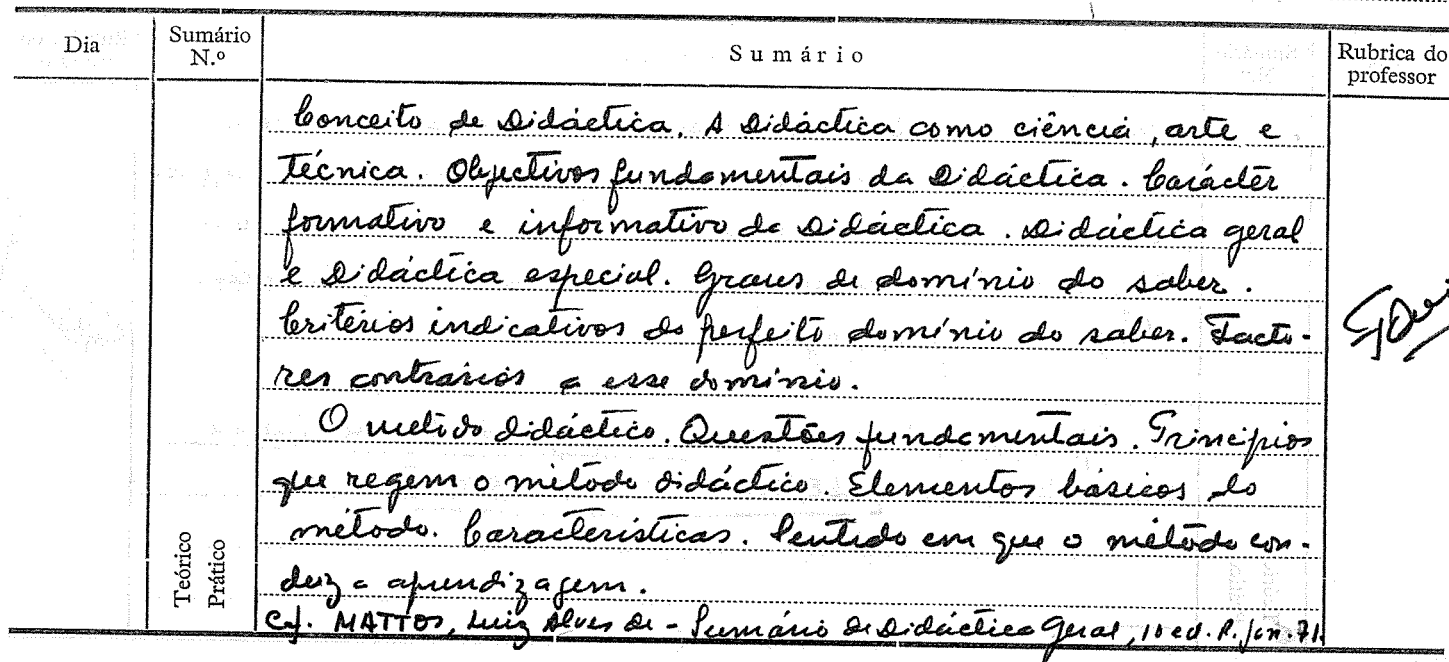 Dia
Sumário N.º
Sumário
Rubrica do professor
Conceito de Didáctica. A Didáctica como ciência, arte e
técnica. Objectivos fundamentais da Didáctica. Carácter
formativo e informativo da Didáctica. Didáctica geral
e Didáctica especial. Graus de domínio do saber.
Critérios indicativos do perfeito domínio do saber. Facto-
res contrários a esse domínio.
O método didáctico. Questões fundamentais. Princípios
que regem o método didáctico. Elementos básicos do
método. Características. Sentido em que o método con-
duz a aprendizagem.
Cf. MATTOS, Luiz Alves de - Sumário de Didáctica Geral, 10 ed. R. Jan. 71.
Teórico
Prático